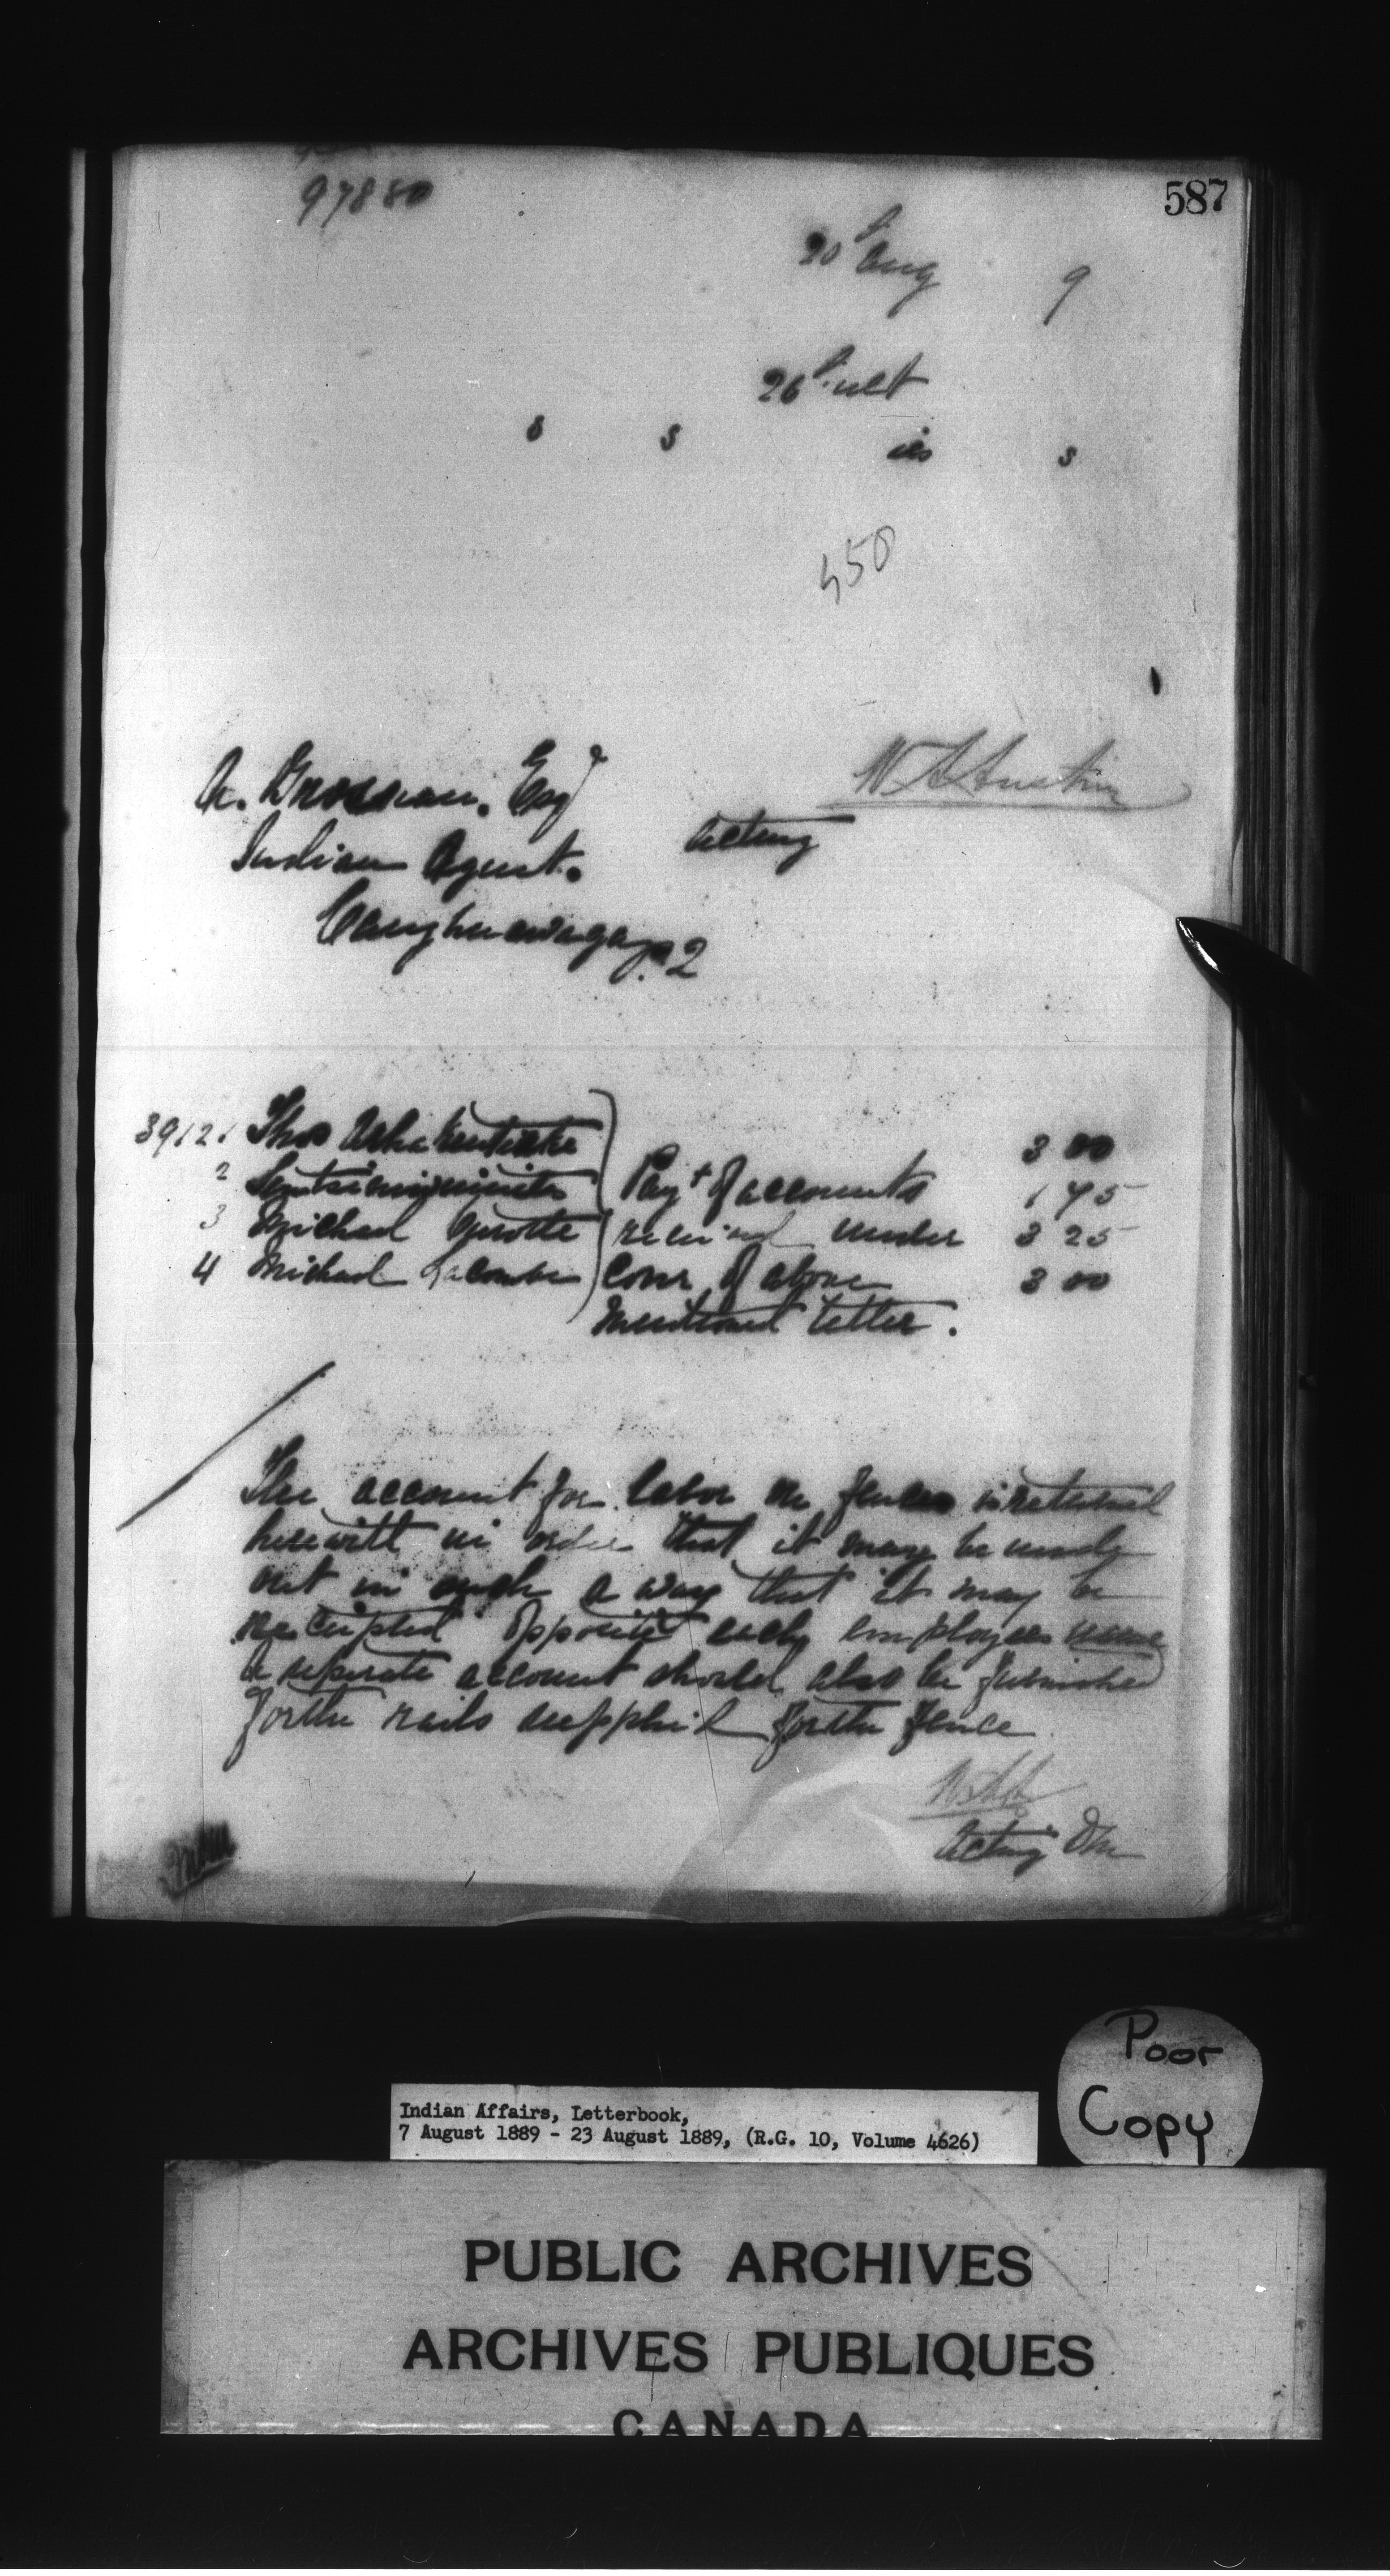 97880
587
20th Aug 9
26th ult
s s ies s
450
A. Brosseau. Esqr
W A Austin
Indian Agent.
Acting
Caughnawaga P. 2
39121 Thos 3 00
2 Payt of accounts 1 75
3 Michael received under 3 25
4 Michael Lacombe Cover of above 3 00
mentioned letter.
The account for labor on fences is returned
herewith in order that it may be made
out in such a way that it may be
receipted opposite each employees name
A separate account should also be furnished
for the rails supplied for the fence
Acting DM
Poor
Copy
Indian Affairs, Letterbook,
7 August 1889 - 23 August 1889, (R.G. 10, Volume 4626)
PUBLIC ARCHIVES
ARCHIVES PUBLIQUES
CANADA